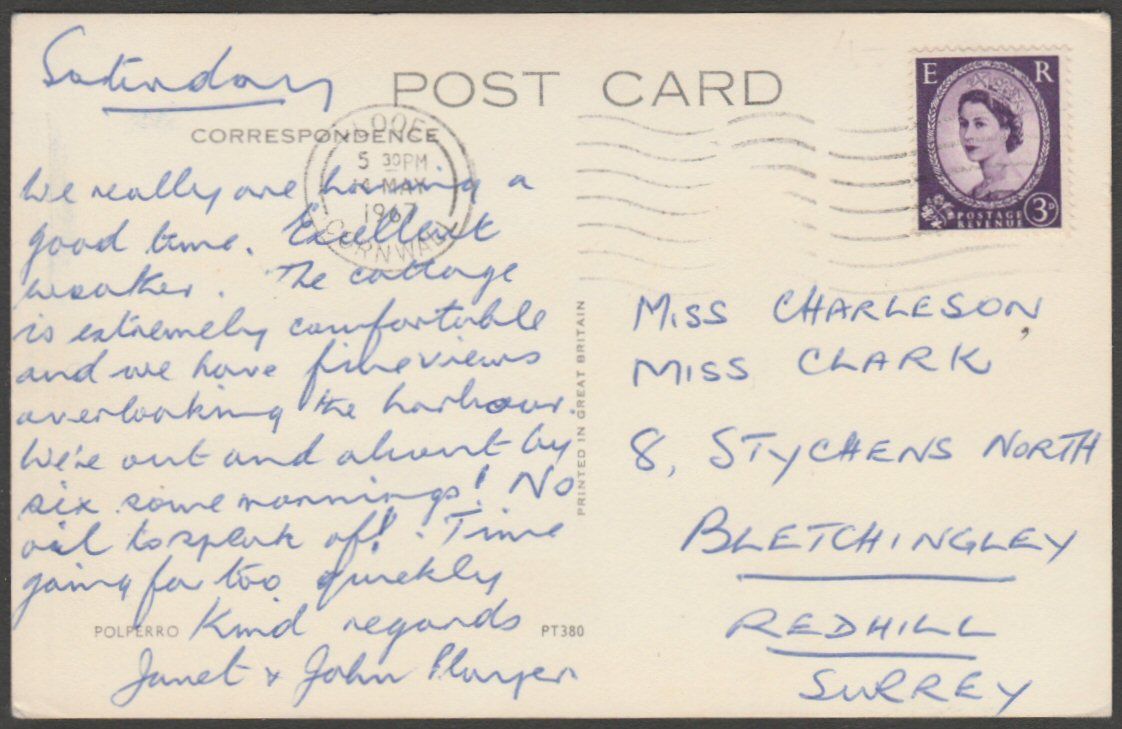 Saturday
POST CARD
CORRESPONDENCE
LOOE
5 30PM
MAY
1967
CORNWALL
E R
POSTAGE
REVENUE
3D
We really are having a
good time. Excellent
weather. The cottage
is extremely comfortable
and we have fine views
overlooking the harbour.
We're out and about by
six some mornings! No
oil to speak of! Time
going far too quickly
Kind regards
Janet & John
POLPERRO
PT380
PRINTED IN GREAT BRITAIN
MISS CHARLESON,
MISS CLARK
8, STYCHENS NORTH
BLETCHINGLEY
REDHILL
SURREY